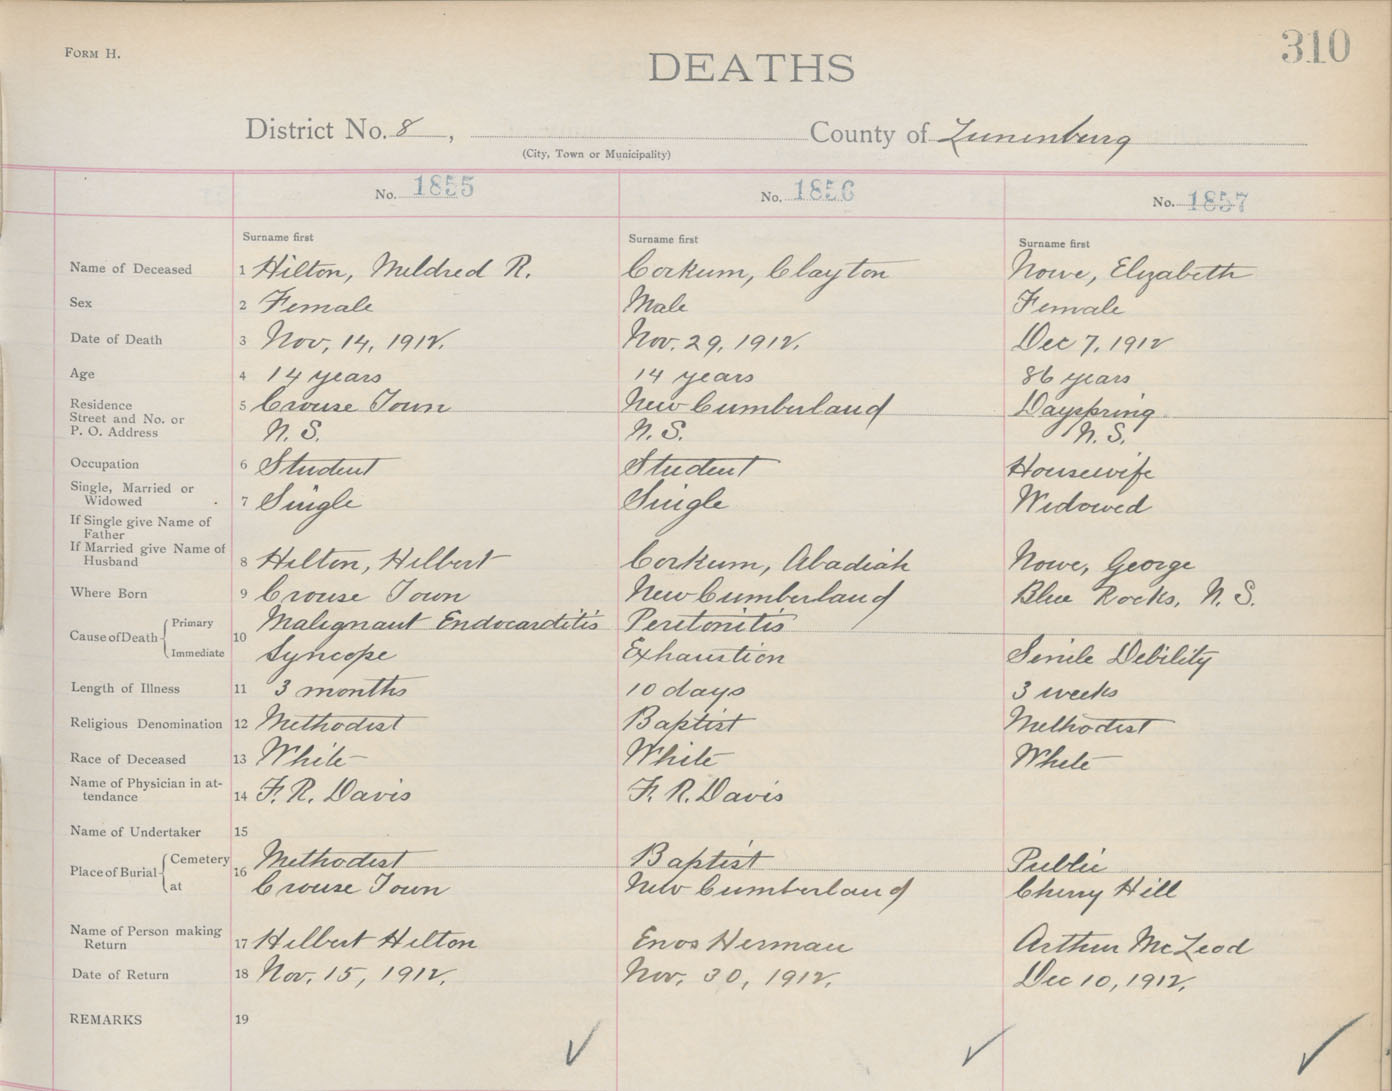 FORM H.
310
DEATHS
District No. 8, County of Lunenburg
(City, Town or Municipality)
No. 1855 No. 1856 No. 1857
Surname first Surname first Surname first
Name of Deceased 1 Hilton, Meldred R. Corkum, Clayton Nowe, Elizabeth
Sex 2 Female Male Female
Date of Death 3 Nov, 14, 1912. Nov. 29, 1912. Dec 7, 1912
Age 4 14 years 14 years 86 years
Residence 5 Crouse Town New Cumberland Dayspring
Street and No. or
P. O. Address N. S. N. S. N. S.
Occupation 6 Student Student Housewife
Single, Married or
Widowed 7 Single Single Widowed
If Single give Name of
Father
If Married give Name of
Husband 8 Hilton, Hilbert Corkum, Abadiah Nowe, George
Where Born 9 Crouse Town New Cumberland Blue Rocks, N. S.
Cause of Death Primary 10 Malignant Endocarditis Peritonitis
Immediate Syncope Exhaustion Senile Debility
Length of Illness 11 3 months 10 days 3 weeks
Religious Denomination 12 Methodist Baptist Methodist
Race of Deceased 13 White White White
Name of Physician in at-
tendance 14 F. R. Davis F. R. Davis
Name of Undertaker 15
Place of Burial Cemetery 16 Methodist Baptist Public
at Crouse Town New Cumberland Cherry Hill
Name of Person making
Return 17 Hilbert Hilton Enos Herman Arthur McLeod
Date of Return 18 Nov. 15, 1912. Nov. 30, 1912. Dec 10, 1912.
REMARKS 19